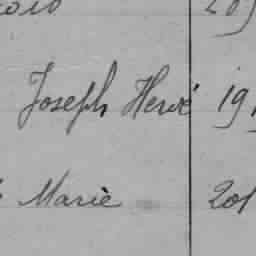 Joseph Hervé 19
Marie 201